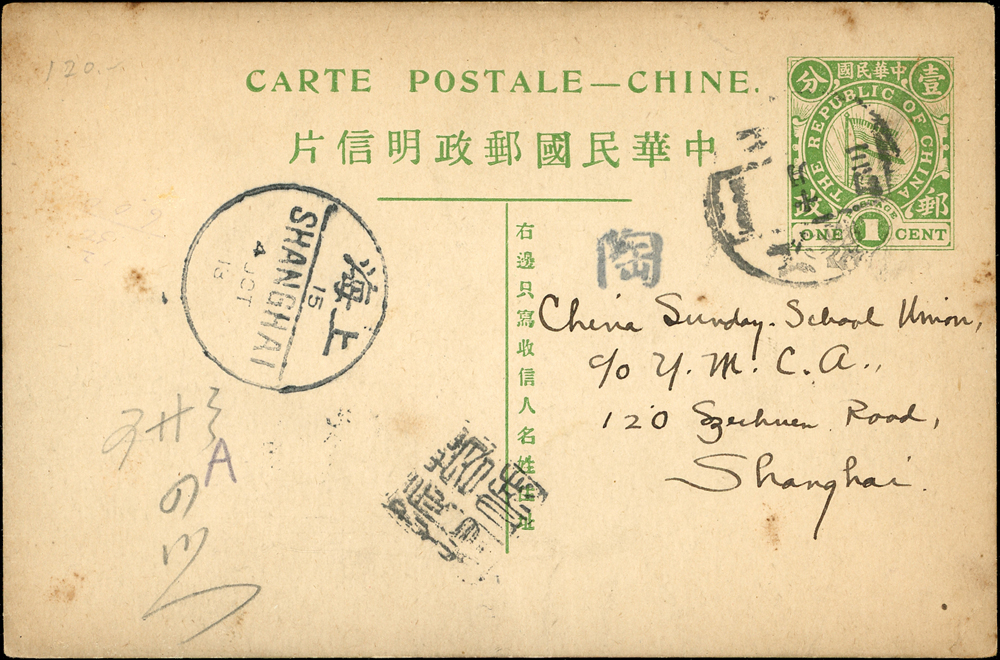 120.-
CARTE POSTALE—CHINE.
片信明政郵國民華中
分 國民華中 壹
THE REPUBLIC OF CHINA
POSTAGE
政 郵
ONE 1 CENT
海上
SHANGHAI
15
4 OCT
13
陶
右邊只寫收信人名姓住址
China Sunday-School Union,
c/o Y. M. C. A.,
120 Szechuen Road,
Shanghai.
A